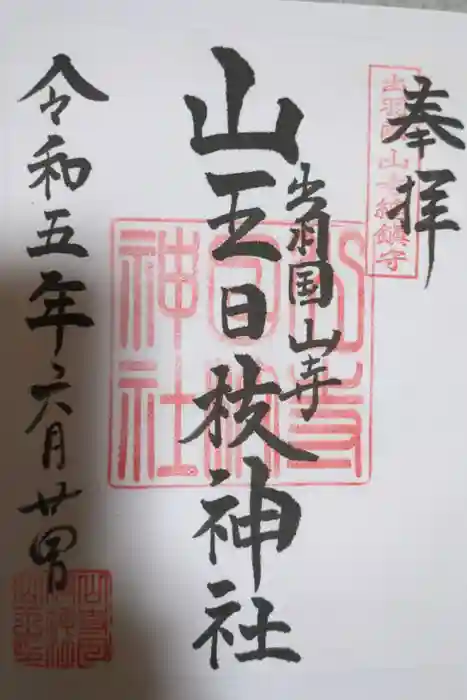 奉拝
出羽國山寺総鎮守
出羽国山寺
山王日枝神社
令和五年六月廿四日